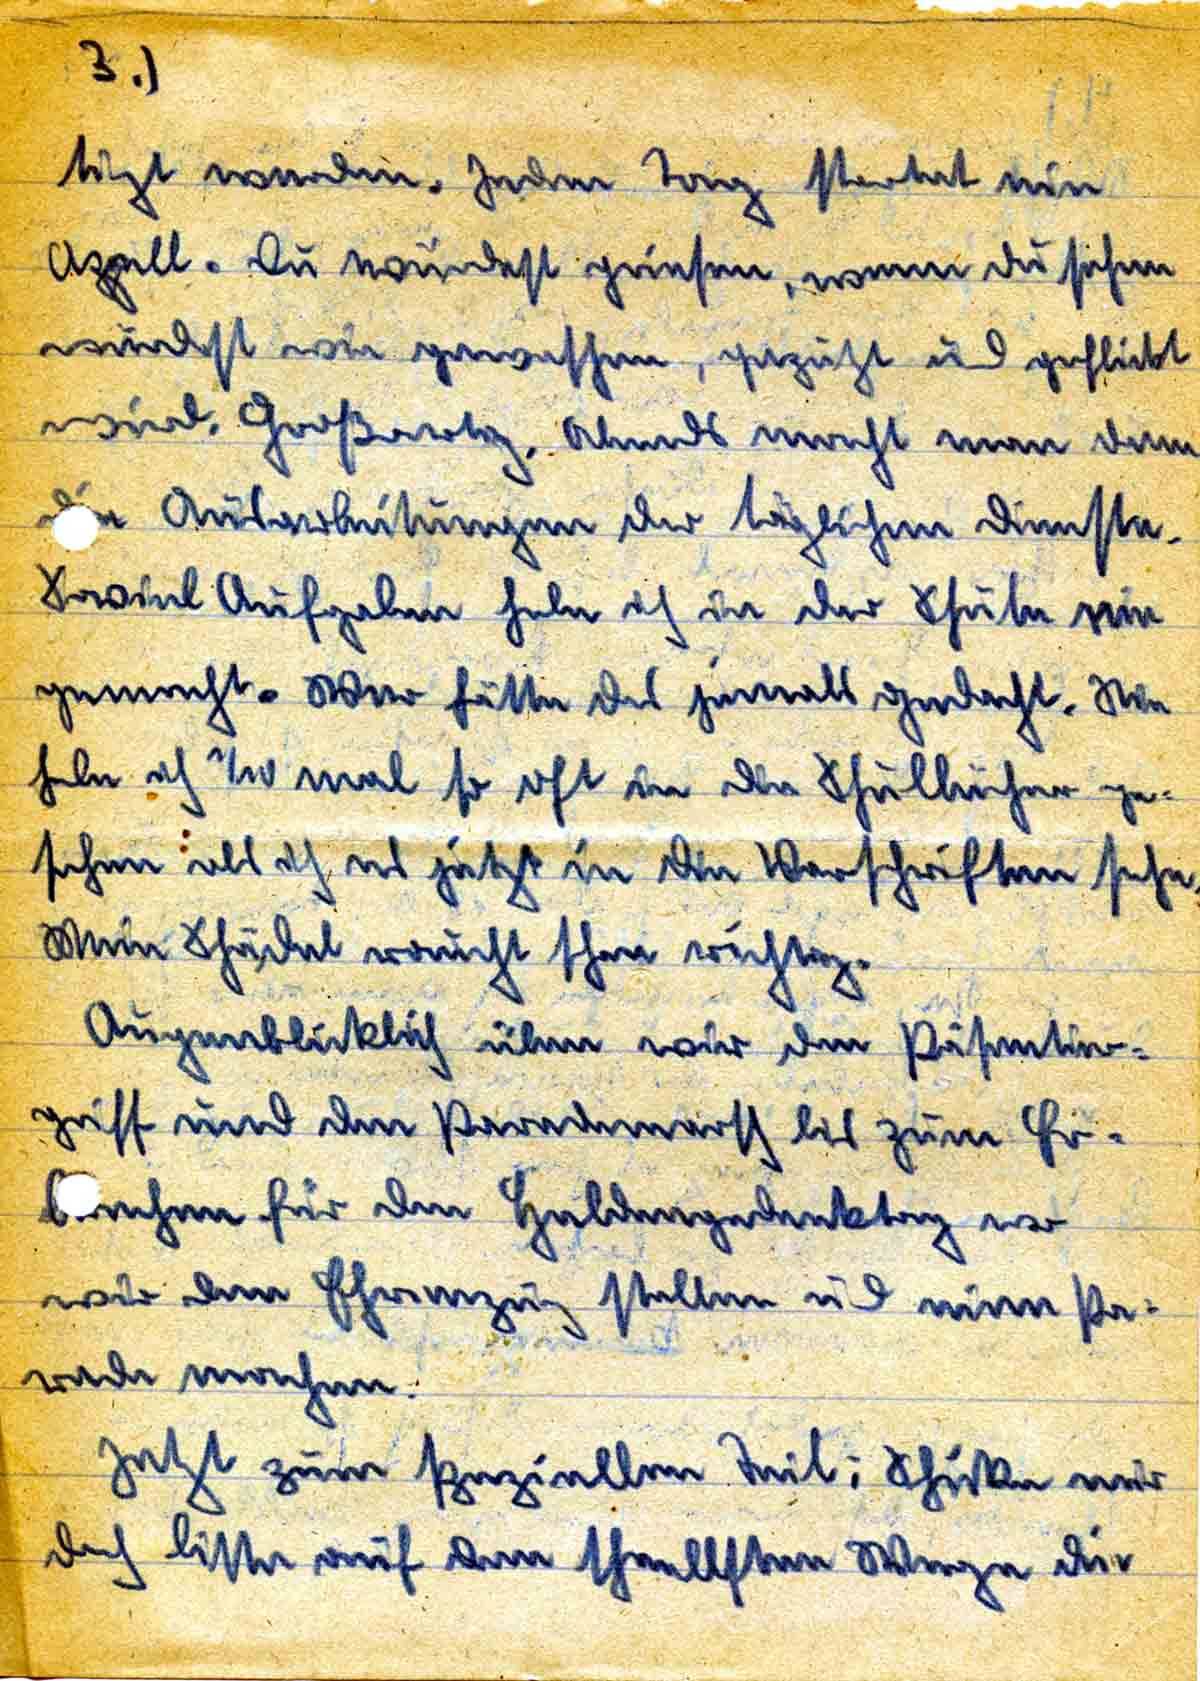 3.)
tizt werden. Jeden Tag startet ein
Appell. Du würdest grinsen, wenn du sehen
würdest wie gewaschen, geputzt und geflickt
wird. Großartig. Abends macht man dann
die Ausarbeitungen der täglichen Dienste.
Soviel Aufgaben habe ich in der Schule nie
gemacht. Wer hätte das jemals gedacht. Nie
habe ich 1/10 mal so oft in die Schulbücher ge=
sehen als ich es jetzt in die Vorschriften sehe.
Mein Schädel raucht schon richtig.
Augenblicklich üben wir den Päsentier=
griff und den Parademarsch bis zum Er=
brechen für den Heldengedenktag wo
wir den Ehrenzug stellen und einen Pa=
rade machen.
Jetzt zum speziellen Teil: Schicke mir
doch bitte auf dem schnellsten Wege die